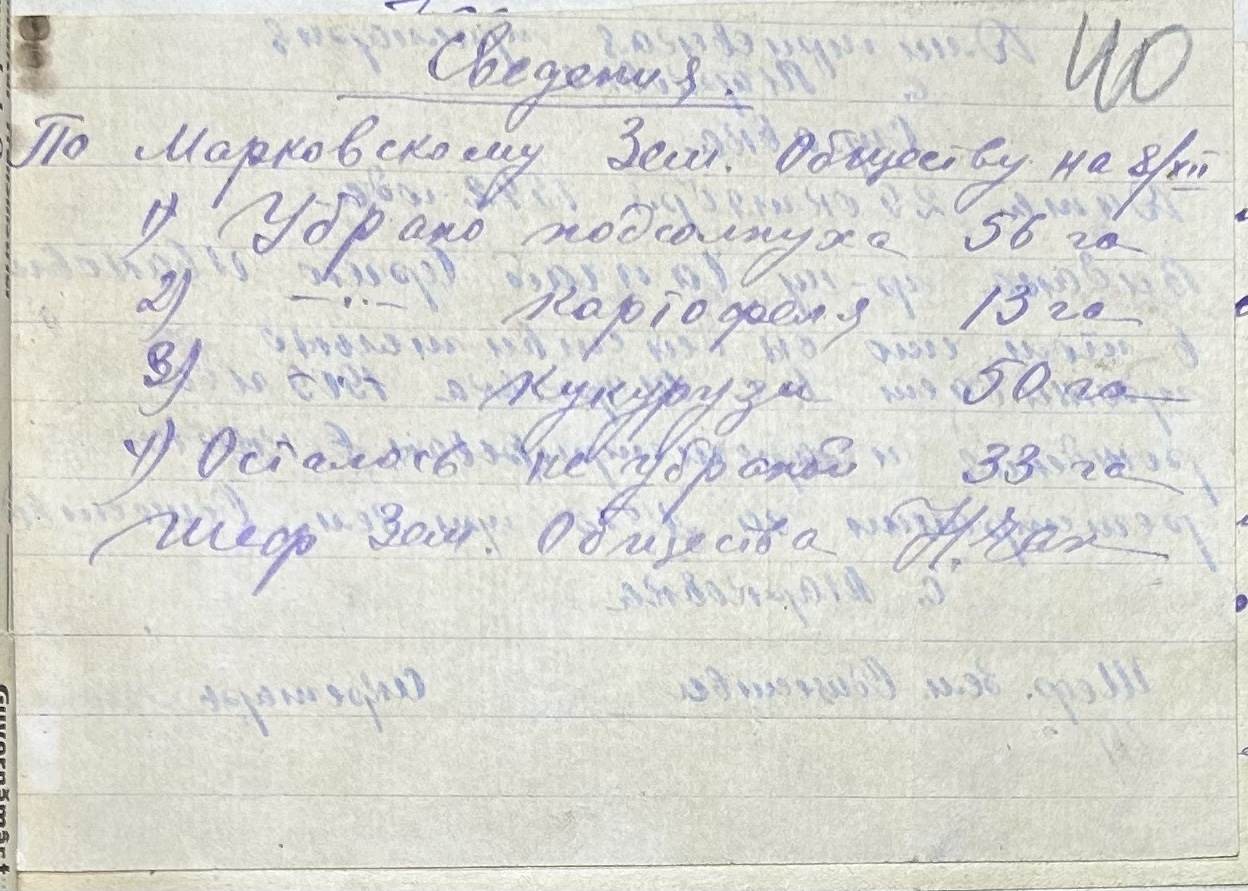 40
Сведения.
По Марковскому Зем. Обществу на 8/XII
1) Убрано подсолнуха 56 га
2) —"— Картофеля 13 га
3) Кукурузи 50 га
4) Осталось не убраной 33 га
Шеф Зем. Общества